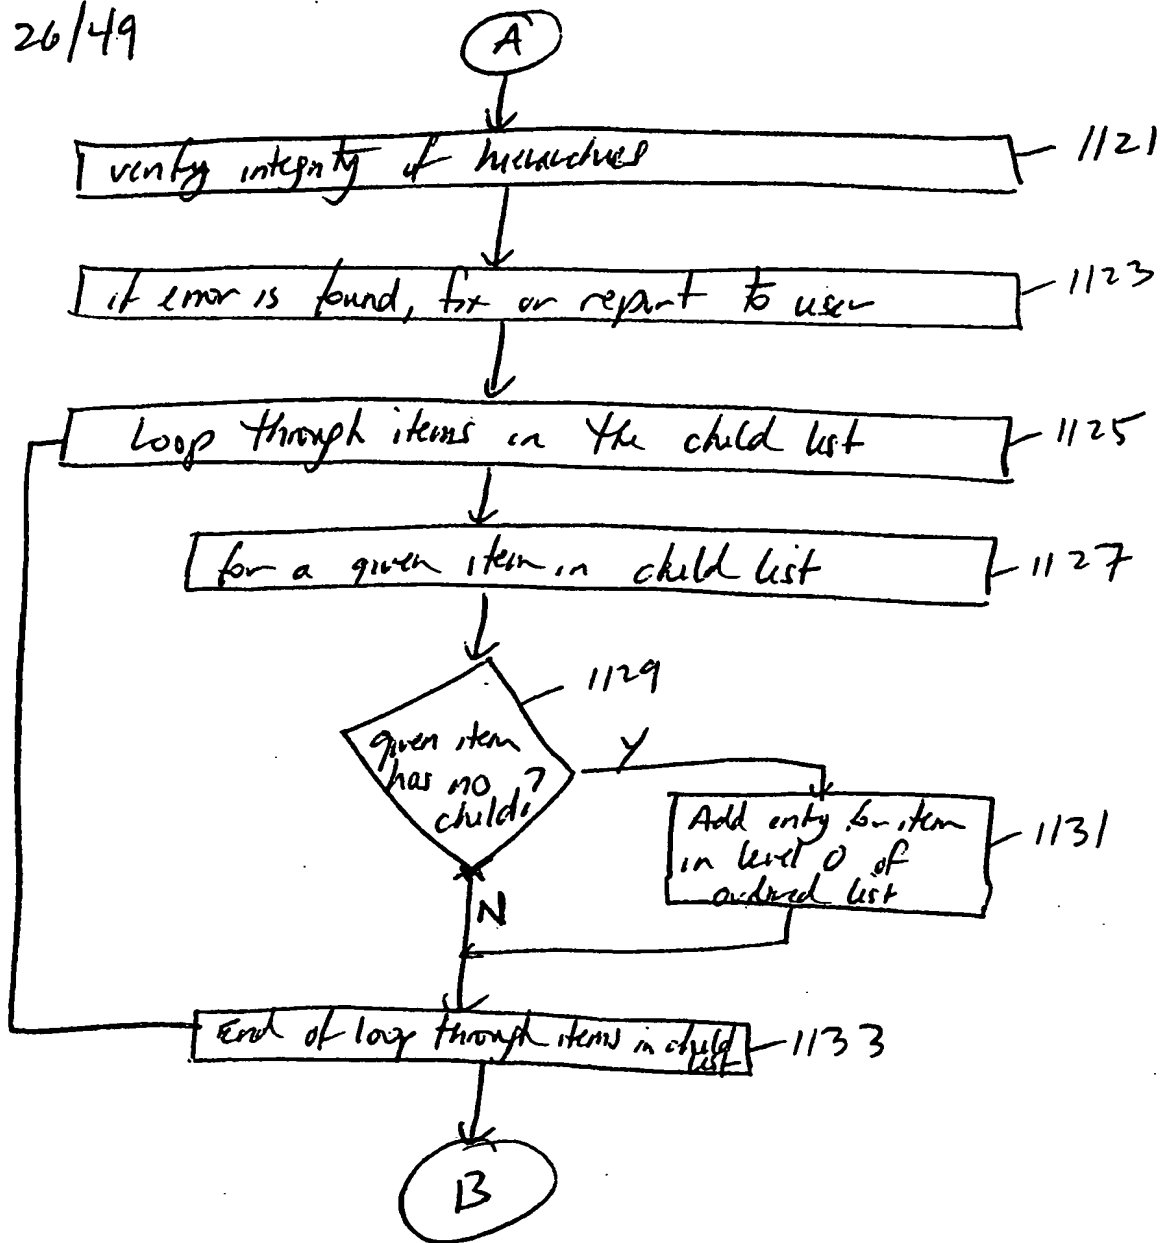 26/49
A
verify integrity of hierarchies
1121
if error is found, fix or report to user
1123
Loop through items in the child list
1125
for a given item in child list
1127
1129
given item
has no
child?
Y
Add entry for item
in level 0 of
ordered list
1131
N
End of loop through items in child
list
1133
B